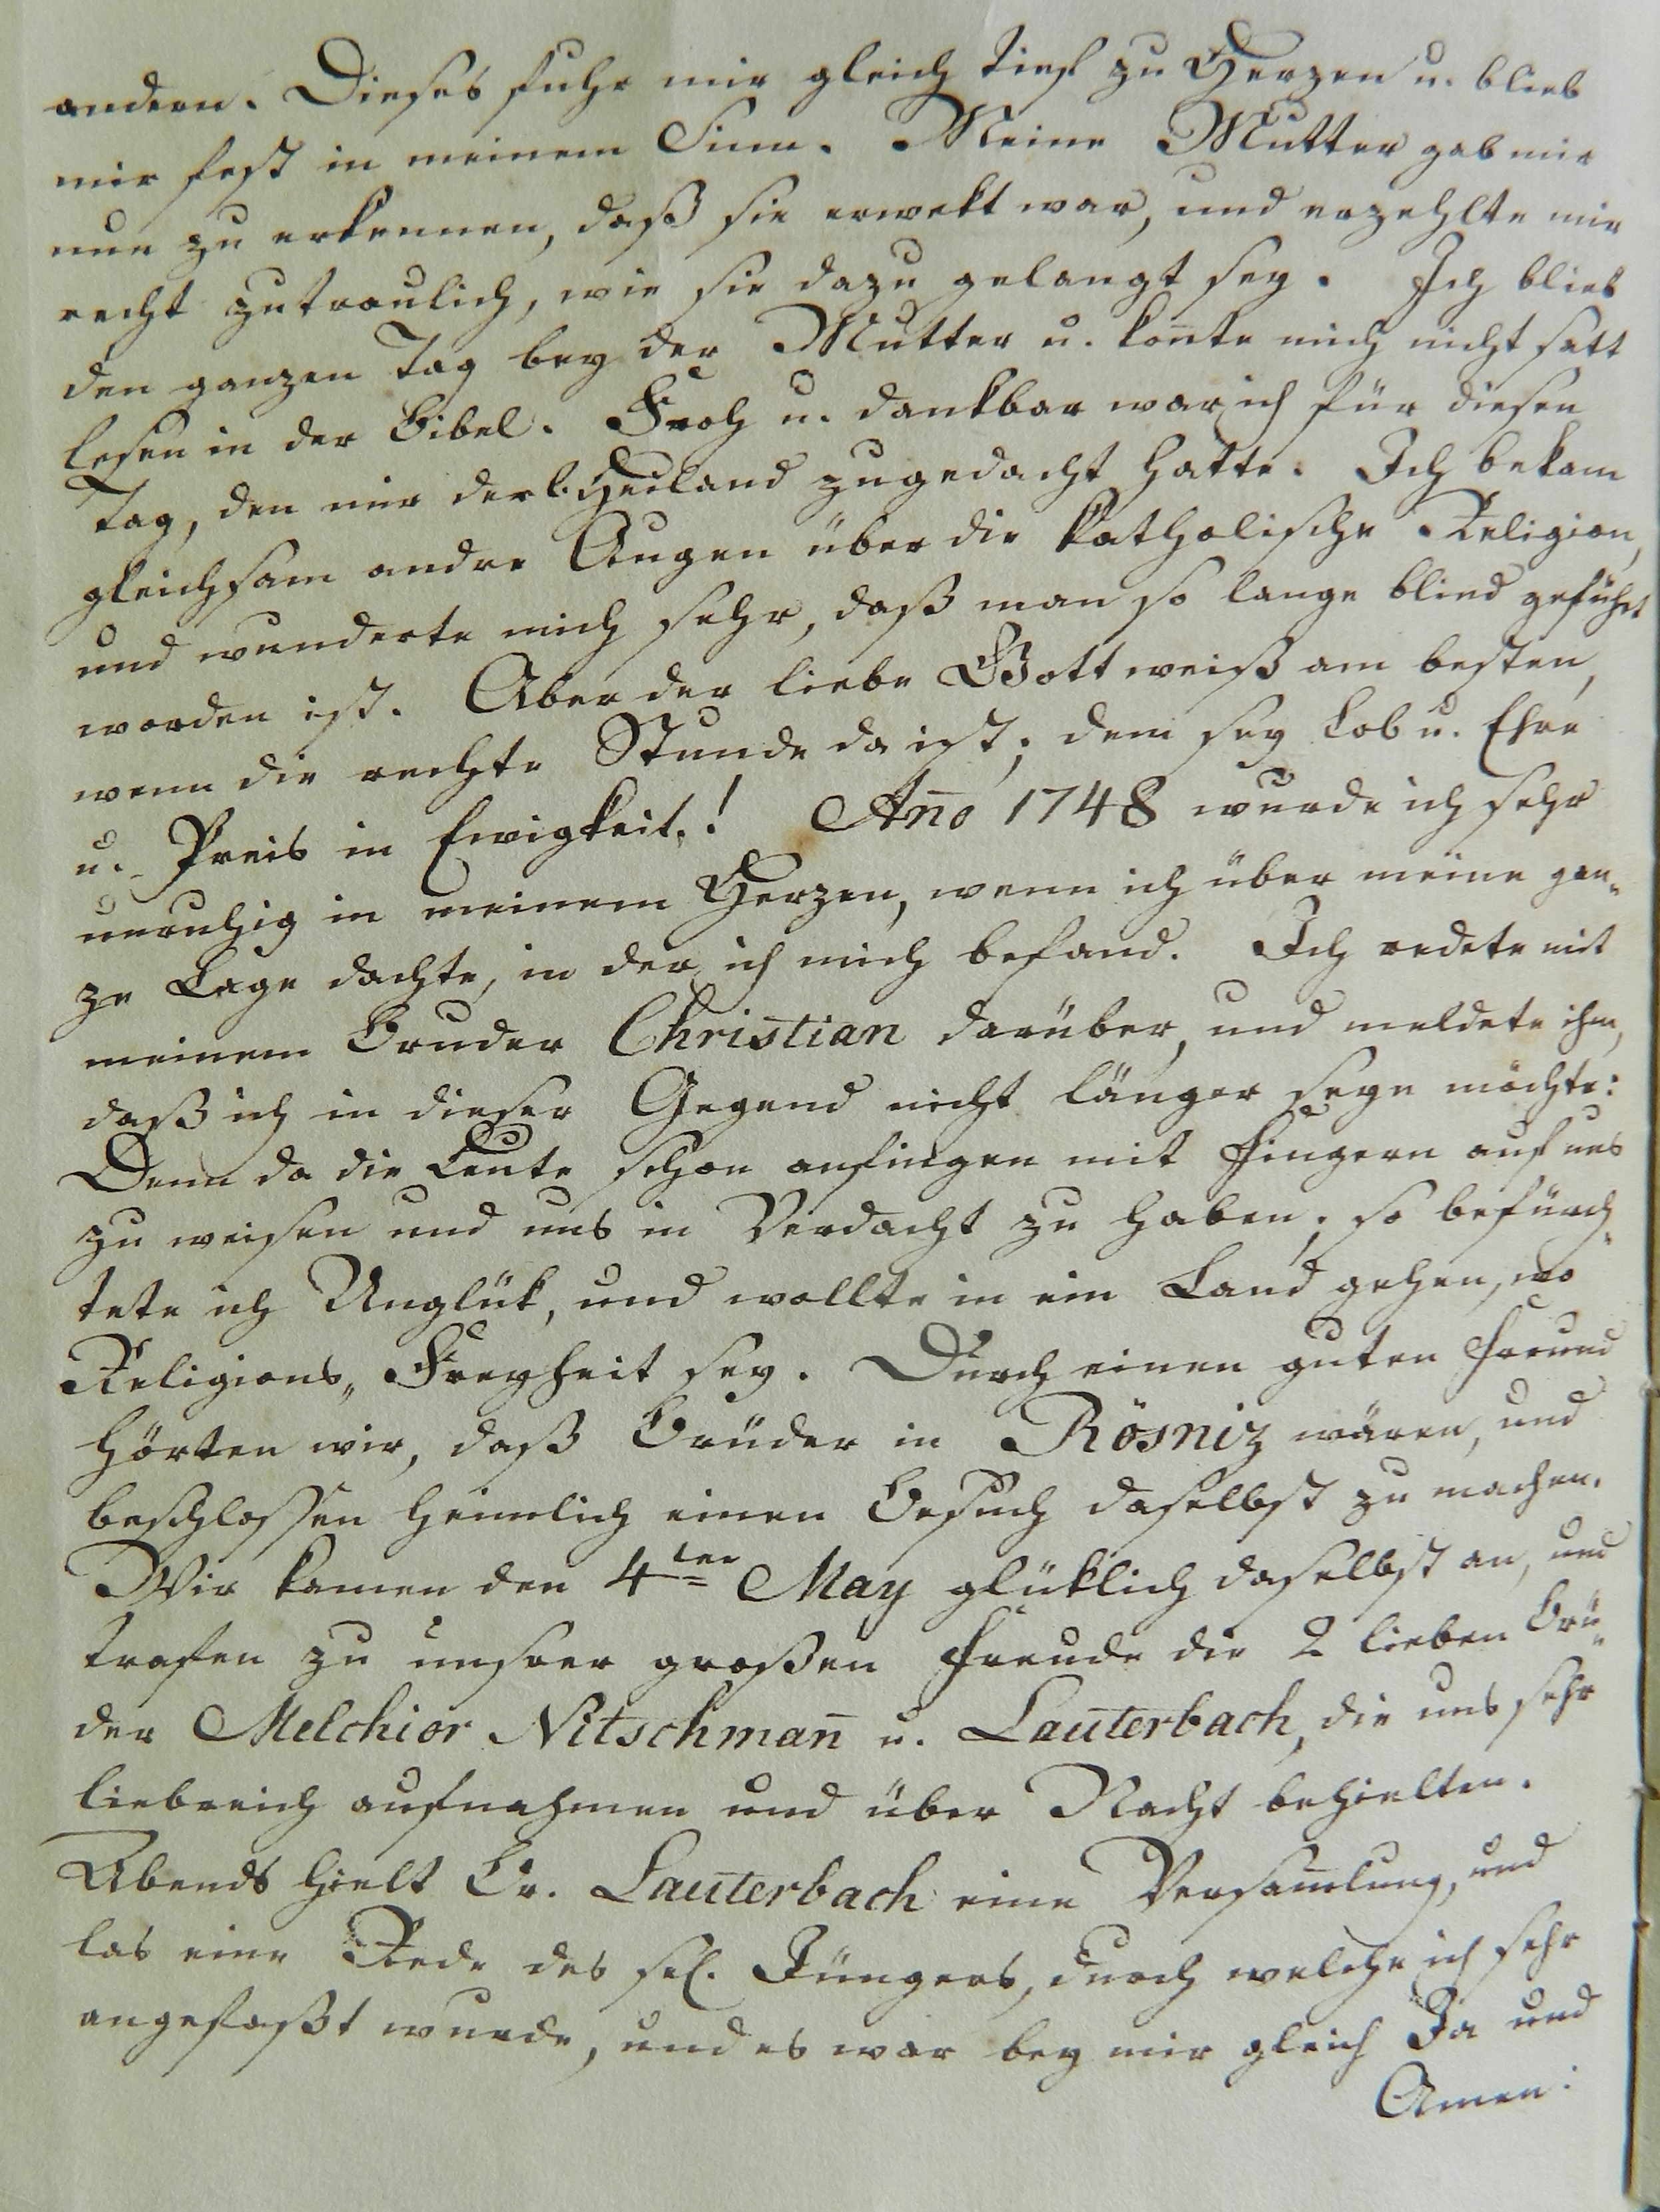 andern. Dieses fuhr mir gleich tief zu Herzen u. blieb
mir fest in meinem Sinn. Meine Mutter gab mir
nun zu erkennen, daß sie erwekt war, und erzehlte mir
recht zutraulich, wie sie dazu gelangt sey. Ich blieb
den ganzen Tag bey der Mutter u. kon̄te mich nicht satt
lesen in der Bibel. Froh u. dankbar war ich für diesen
Tag, den mir der l. Heiland zugedacht hatte. Ich bekam
gleichsam andre Augen über die katholische Religion,
und wunderte mich sehr, daß man so lange blind geführt
worden ist. Aber der liebe Gott weiß am besten,
wenn die rechte Stunde da ist; dem sey Lob u. Ehre
u. Preis in Ewigkeit.! An̄o 1748 wurde ich sehr
unruhig in meinem Herzen, wenn ich über meine gan„
ze Lage dachte, in der ich mich befand. Ich redete mit
meinem Bruder Christian darüber, und meldete ihm,
daß ich in dieser Gegend nicht länger seyn möchte:
Denn da die Leute schon anfingen mit Fingern auf uns
zu weisen und uns in Verdacht zu haben; so befürch„
tete ich Unglük, und wollte in ein Land gehen, wo
Religions„Freyheit sey. Durch einen guten Freund
hörten wir, daß Brüder in Rösniz wären, und
beschlossen heimlich einen Besuch daselbst zu machen.
Wir kamen den 4ten May glüklich daselbst an, und
trafen zu unsrer großen Freude die 2 lieben Brü„
der Melchior Nitschman̄ u. Lauterbach, die uns sehr
liebreich aufnahmen und über Nacht behielten.
Abends hielt Br. Lauterbach eine Versam̄lung, und
las eine Rede des sel. Jüngers, durch welche ich sehr
angefaßt wurde, und es war bey mir gleich Ja und
Amen: